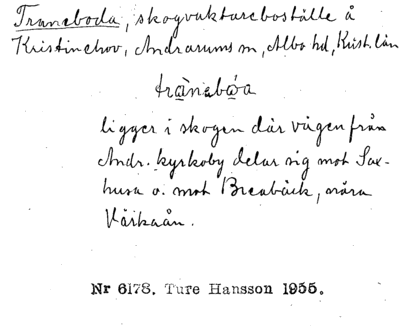 Traneboda, skogvaktareboställe å
Kristinehov, Andrarums sn, Albo hd, Krist. län
ligger i skogen där vägen från
Andr. kyrkoby delar sig mot Sax-
husa o. mot Brenbäck, nära
Verkaån.
Nr 6178. Ture Hansson 1955.